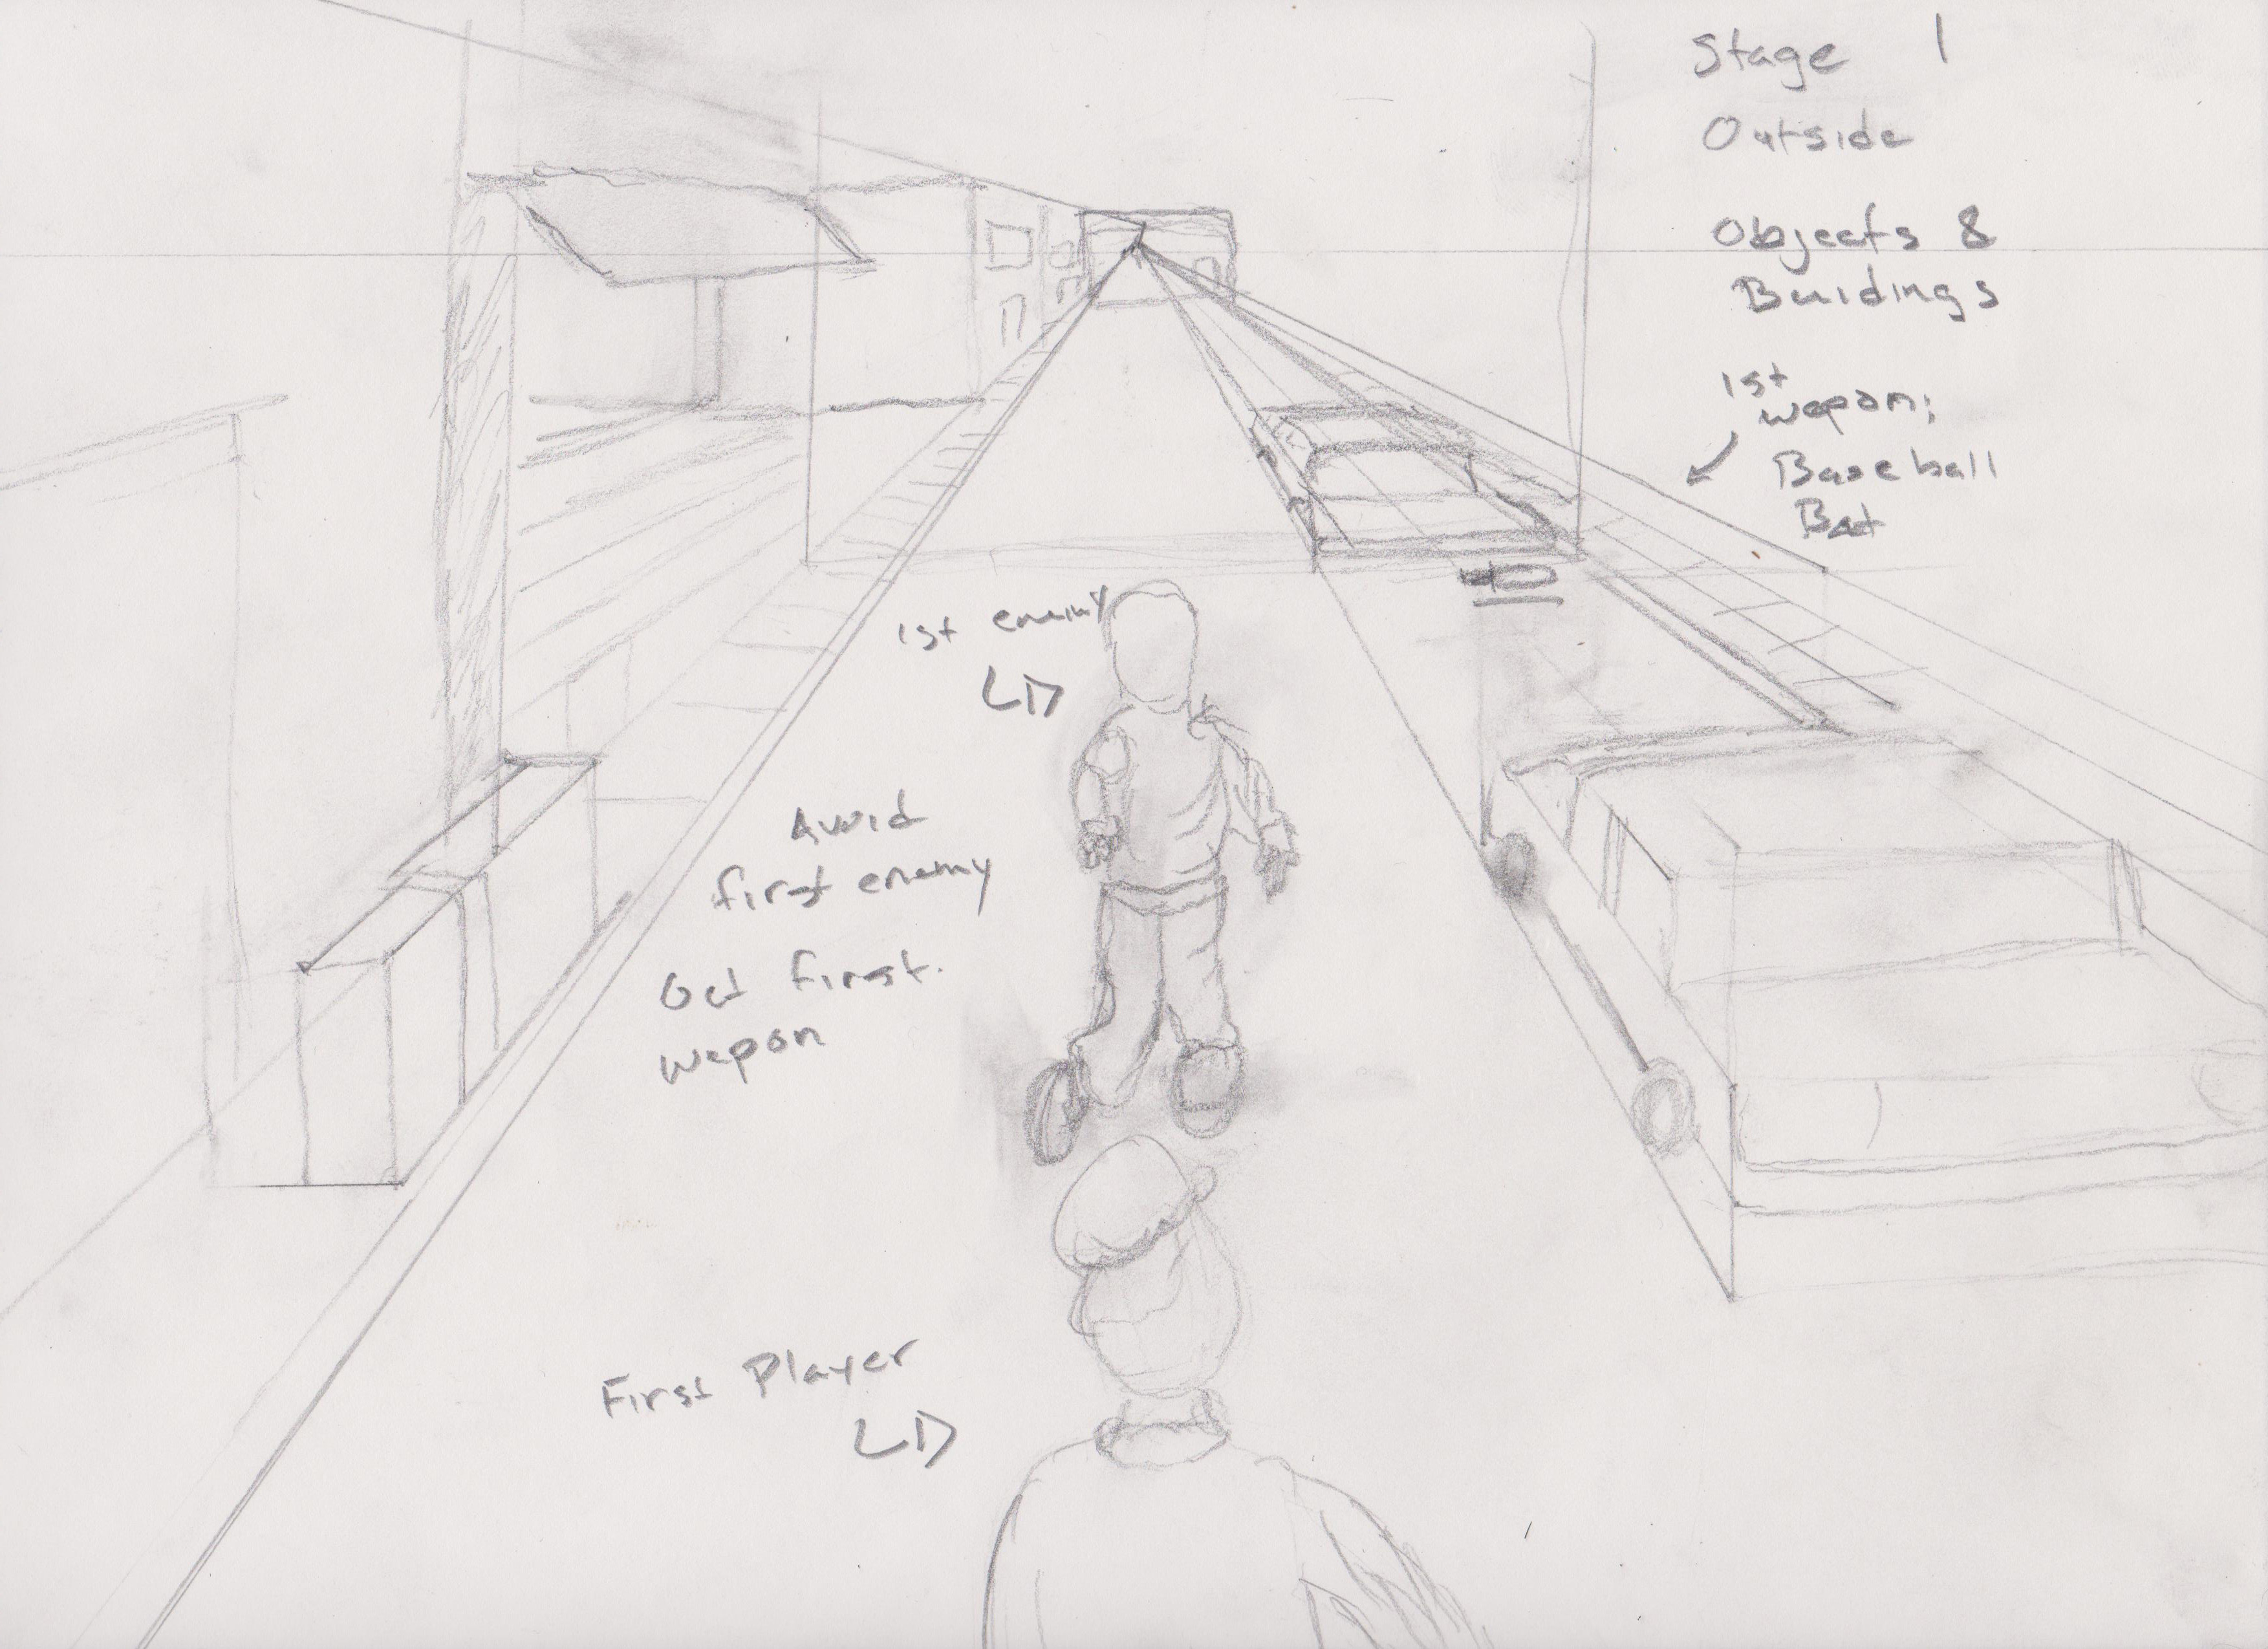 Stage 1
Outside
Objects &
Buildings
1st
wepon;
Baseball
Bat
1st enemy
Avoid
first enemy
Get first.
wepon
First Player